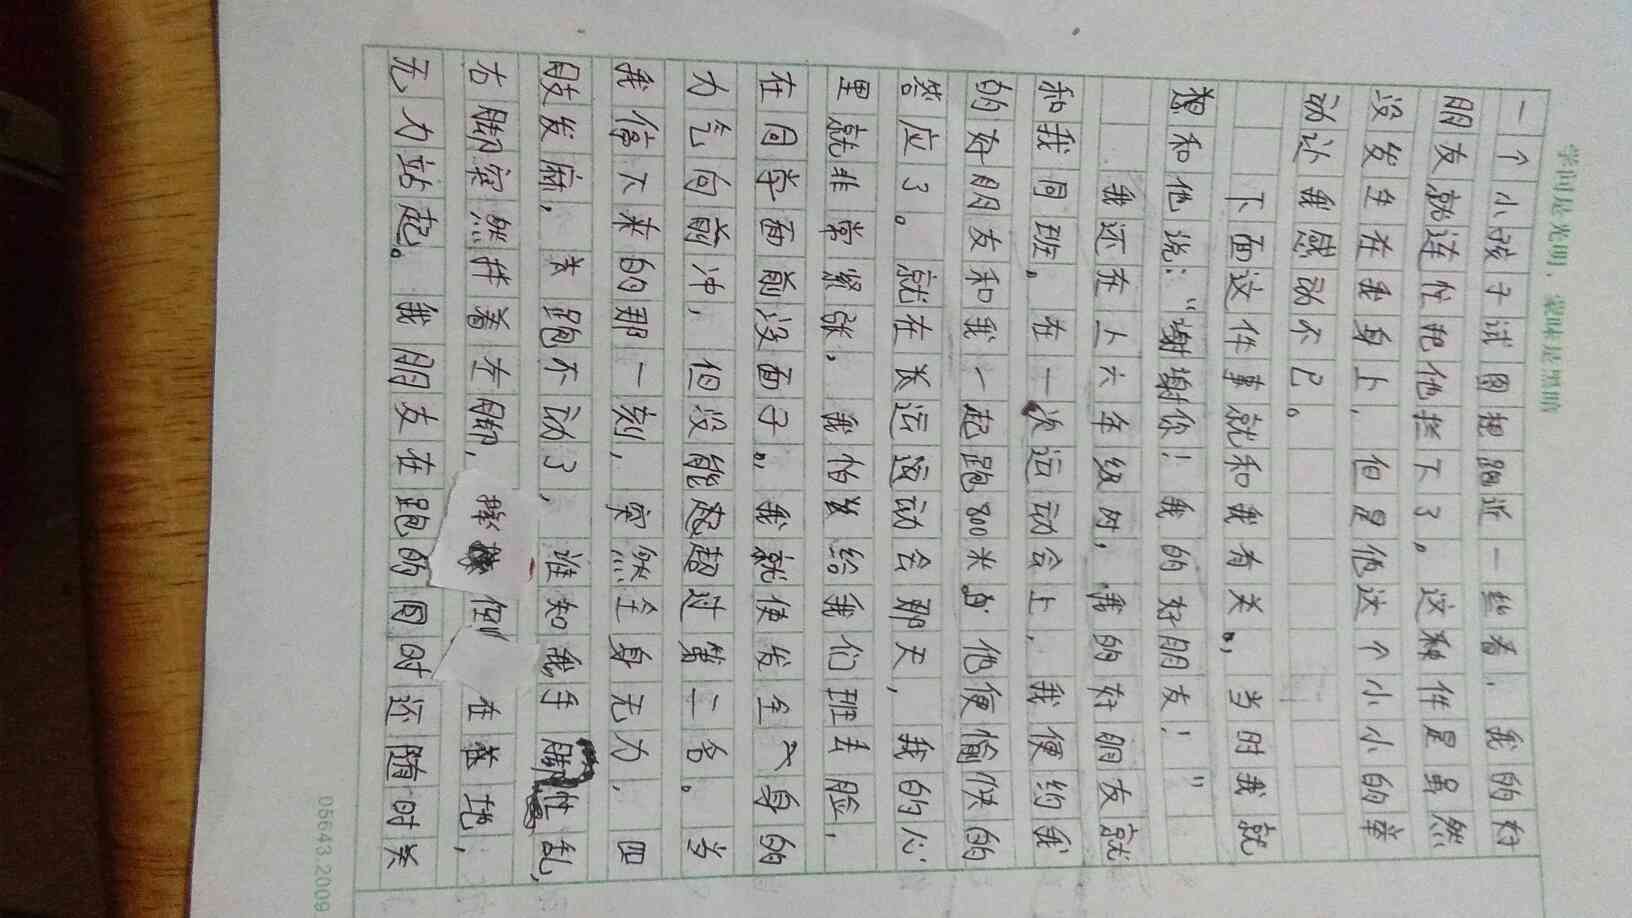 学问是光明，蒙昧是黑暗
一个小孩子试图把跑近一丝看，我的好
朋友就连忙把他拦下了。这种件是虽然
没发生在我身上，但是他这个小小的举
动让我感动不已。
下面这件事就和我有关。当时我就
想和他说：“谢谢你！我的好朋友！”
我还在上六年级时，我的好朋友就
和我同班。在一次运动会上，我便约我
的好朋友和我一起跑800米 他便愉快的
答应了。就在长运运动会那天，我的心
里就非常紧张，我怕 给我们班丢脸，
在同学面前没面子。我就使发全 身的
力气向前冲，但没能起超过第二名。当
我停下来的那一刻，突然全身无力，四
肢发麻， 跑不动了，谁知我手脚忙乱，
右脚突然拌着左脚， 倒在 地，
无力站起。我朋友在跑的同时还随时关
05643.2009